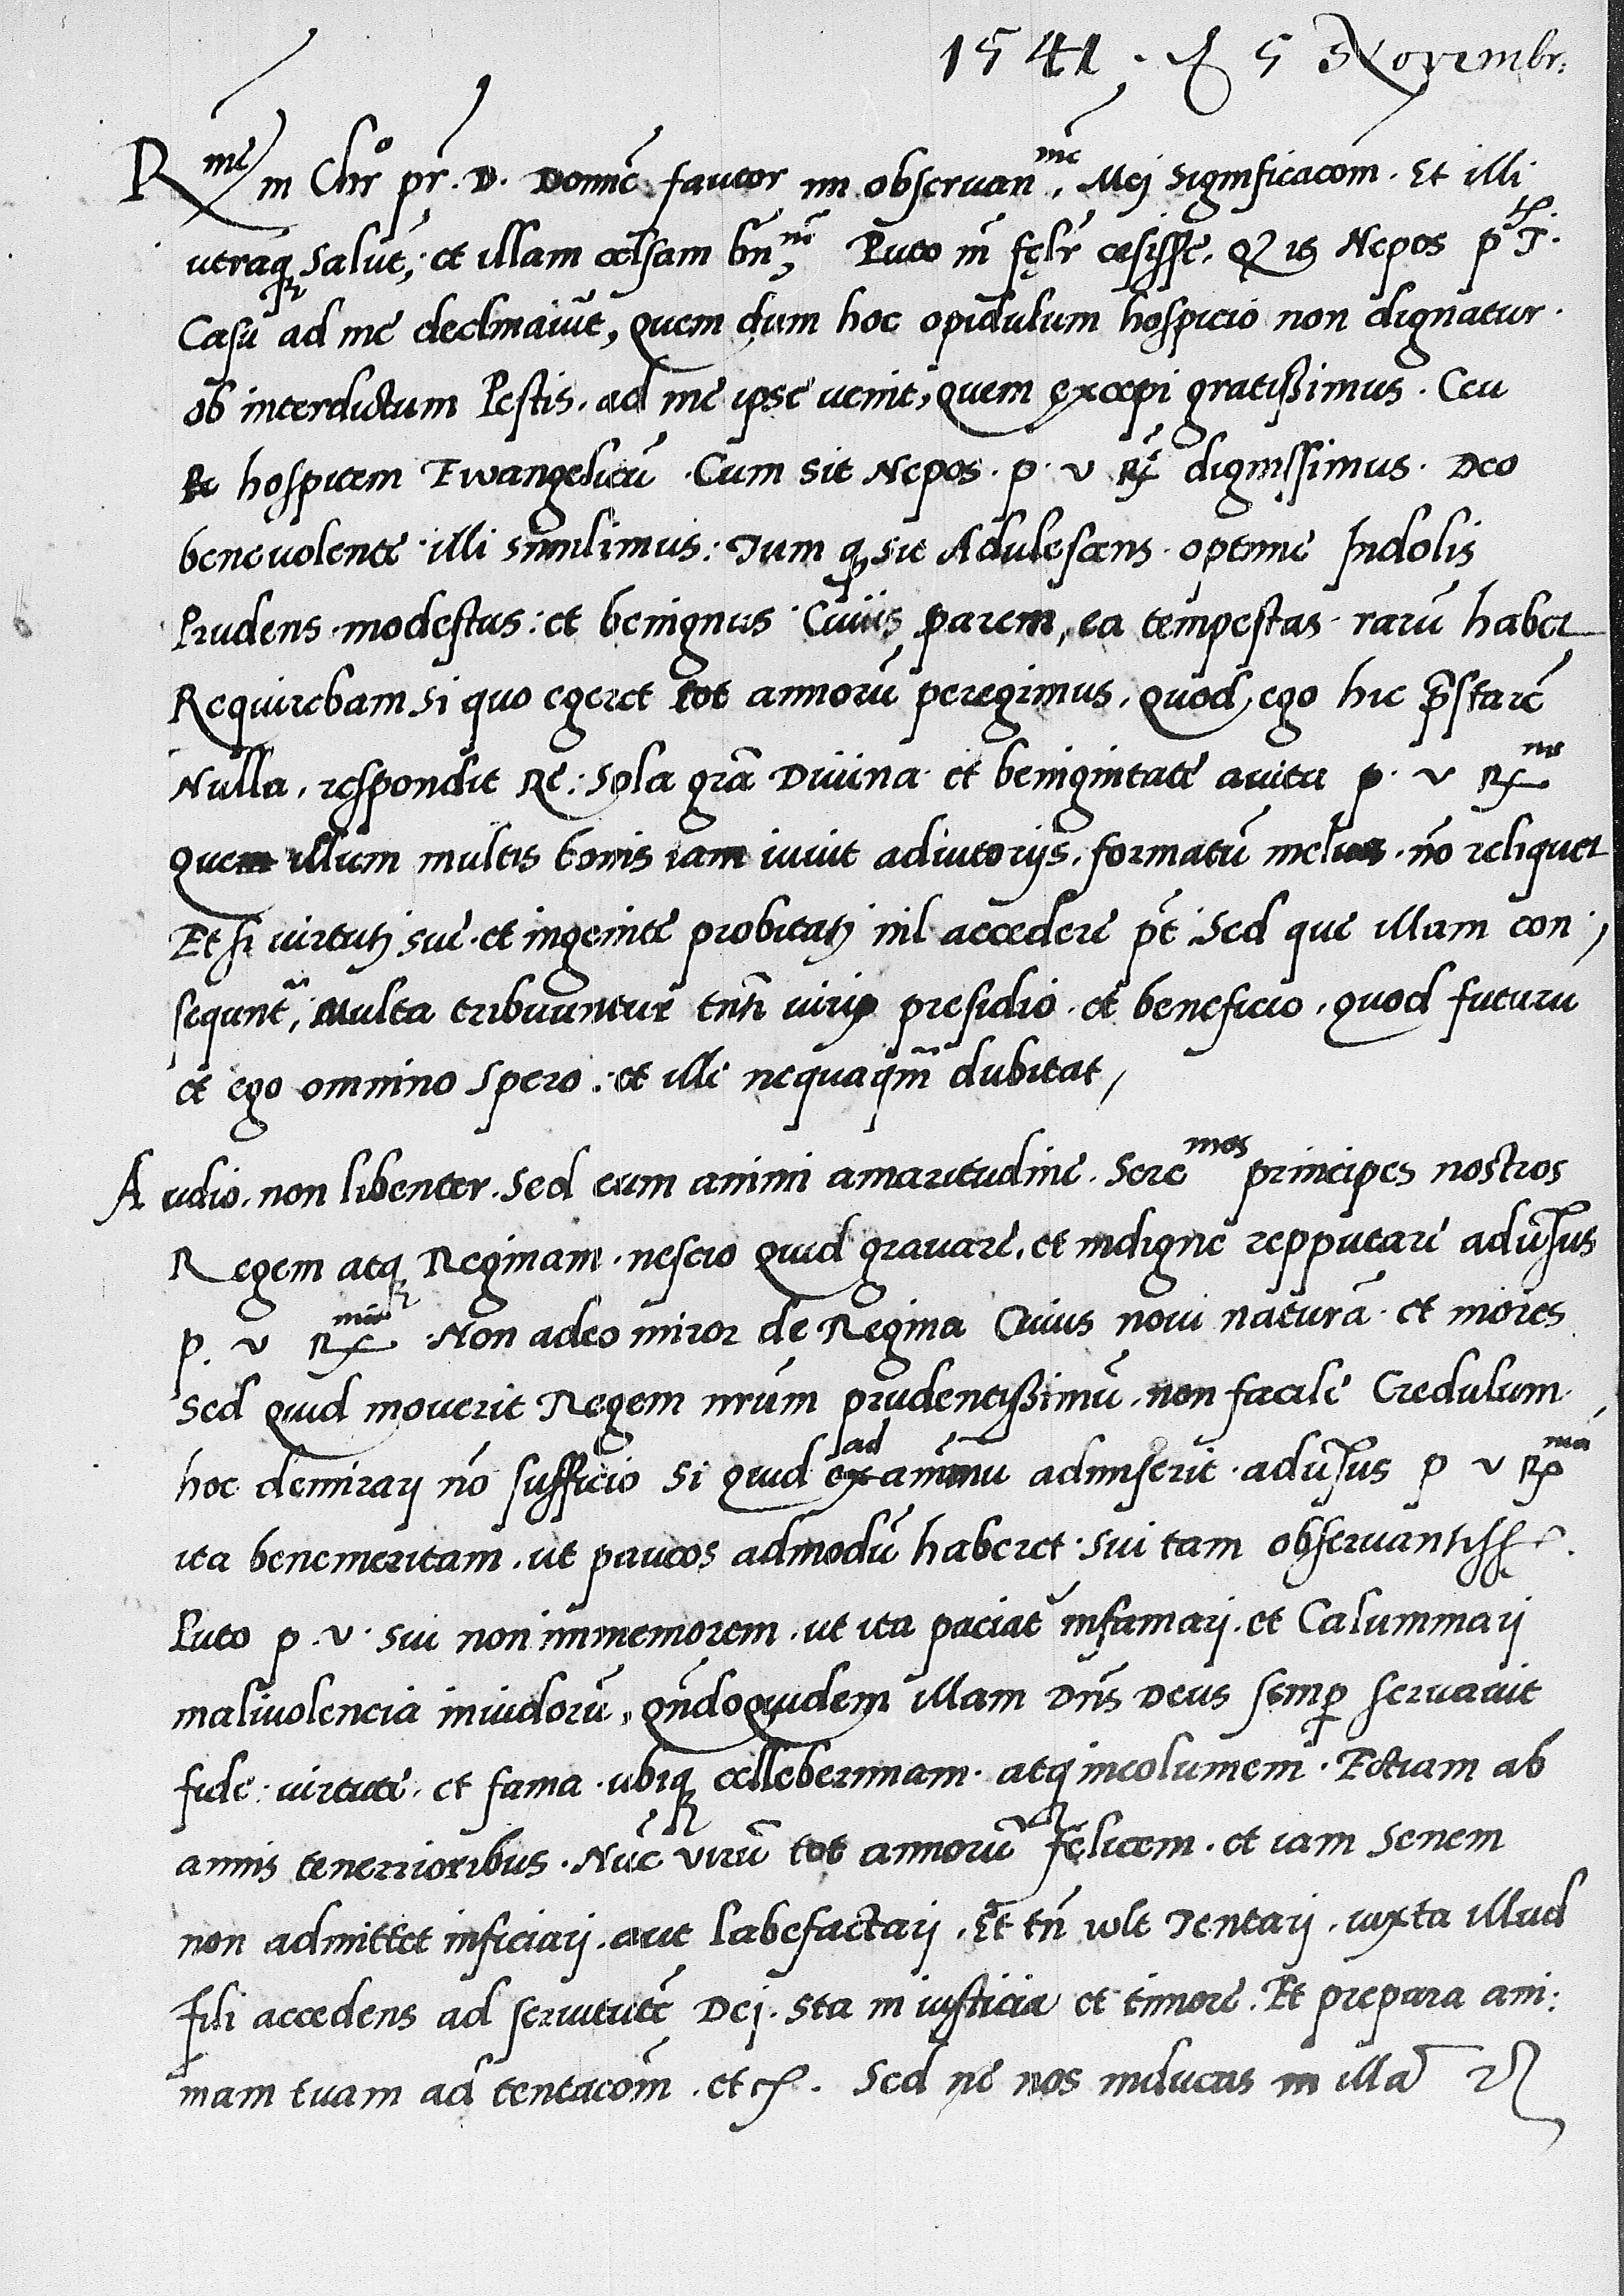 1541 . d 5 Novembr:
R me in Chro pr. D. Domne fautor mi observan me, Mei significacom. Et illi
utramq salute, et illam celsam bn me, Puto m felr cesisse, Q is Nepos p T.
Casu ad me declinavit, quem dum hoc opidulum hospicio non dignatur.
ob interdictum Pestis. ad me ipse venit, quem excepi gratissimus. Ceu
hospitem Ewangelicu. Cum sit Nepos. p. v R dignissimus. Deo
benevolente illi similimus: Tum q sit Adulescens optime Indolis
Prudens modestus: et benignus Cuius parem, ea tempestas raru habet
Requirebam si quo egeret tot annoru peregrinus, quod ego hic pstare
Nulla, respondit Re: Sola gra Divina et benignitate avita p. v R me
Quem illum multis bonis iam iuvit adiutoriis. formatu melius no reliquet
Et si virtuti sue et ingenite probitati nil accedere pt. Sed que illam con,
sequnt, Multa tribuuntur tnti viri presidio et beneficio. quod futuru
et ego omnino spero: et ille nequaqm dubitat,
Audio. non libenter. Sed cum animi amaritudine. Sere mos principes nostros
Regem atq Reginam. nescio quid gravari. et indigne repputari adusus
p. v R ma. Non adeo miror de Regina Cuius novi natura et mores
Sed quid moverit Regem nrum prudentissimu. non facile Credulum.
hoc demirari no sufficio Si quid ad animu admiserit adusus p v R ma
ita benemeritam. ut paucos admodu haberet sui tam observantiss.
Puto p. v. sui non immemorem. ut ita paciat infamari. et Calumniari
malivolencia invidoru, qndoquidem illam Dns Deus semp servavit
fide virtute et fama ubiq celleberimam atq incolumem. Ectiam ab
annis tenerrioribus. Nuc viru tot annoru felicem et iam Senem
non admittet inficiari. aut labefactari, Et tn vult Tentari. iuxta illud
fili accedens ad servitute Dei. Sta in iusticia et timore. Et prepara ani:
mam tuam ad tentacom. et c. Sed ne nos inducas in illa